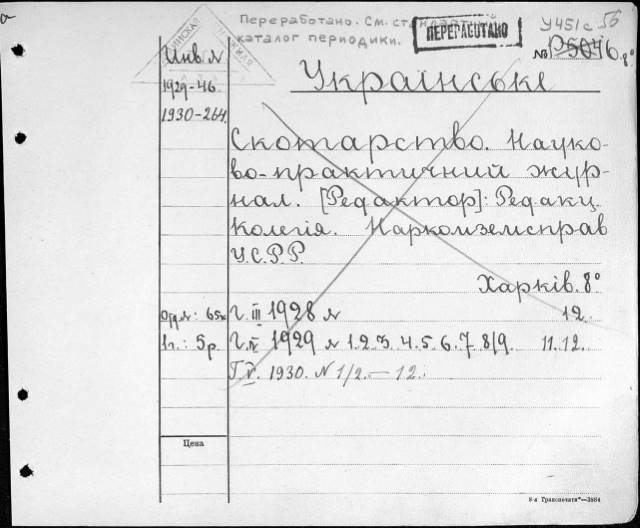 Переработано. См. стандартный
каталог периодики.
ПЕРЕРАБОТАНО
У451с 56
№ Р5046 8°
Инв №
1929-46
1930-264.
Українське
Скотарство. Науко-
во-практичний жур-
нал. [Редактор]: Редакц.
Колегія. Наркомземсправ
У.С.Р.Р.
Харків. 8°
Отд №: 65к Г. III 1928 № 12.
1г.: 5р Г. IV 1929 № 1.2.3. 4.5.6.7. 8/9. 11.12.
Г. V. 1930. N 1/2.—12.
Цена
8-я Транспечати"—3884